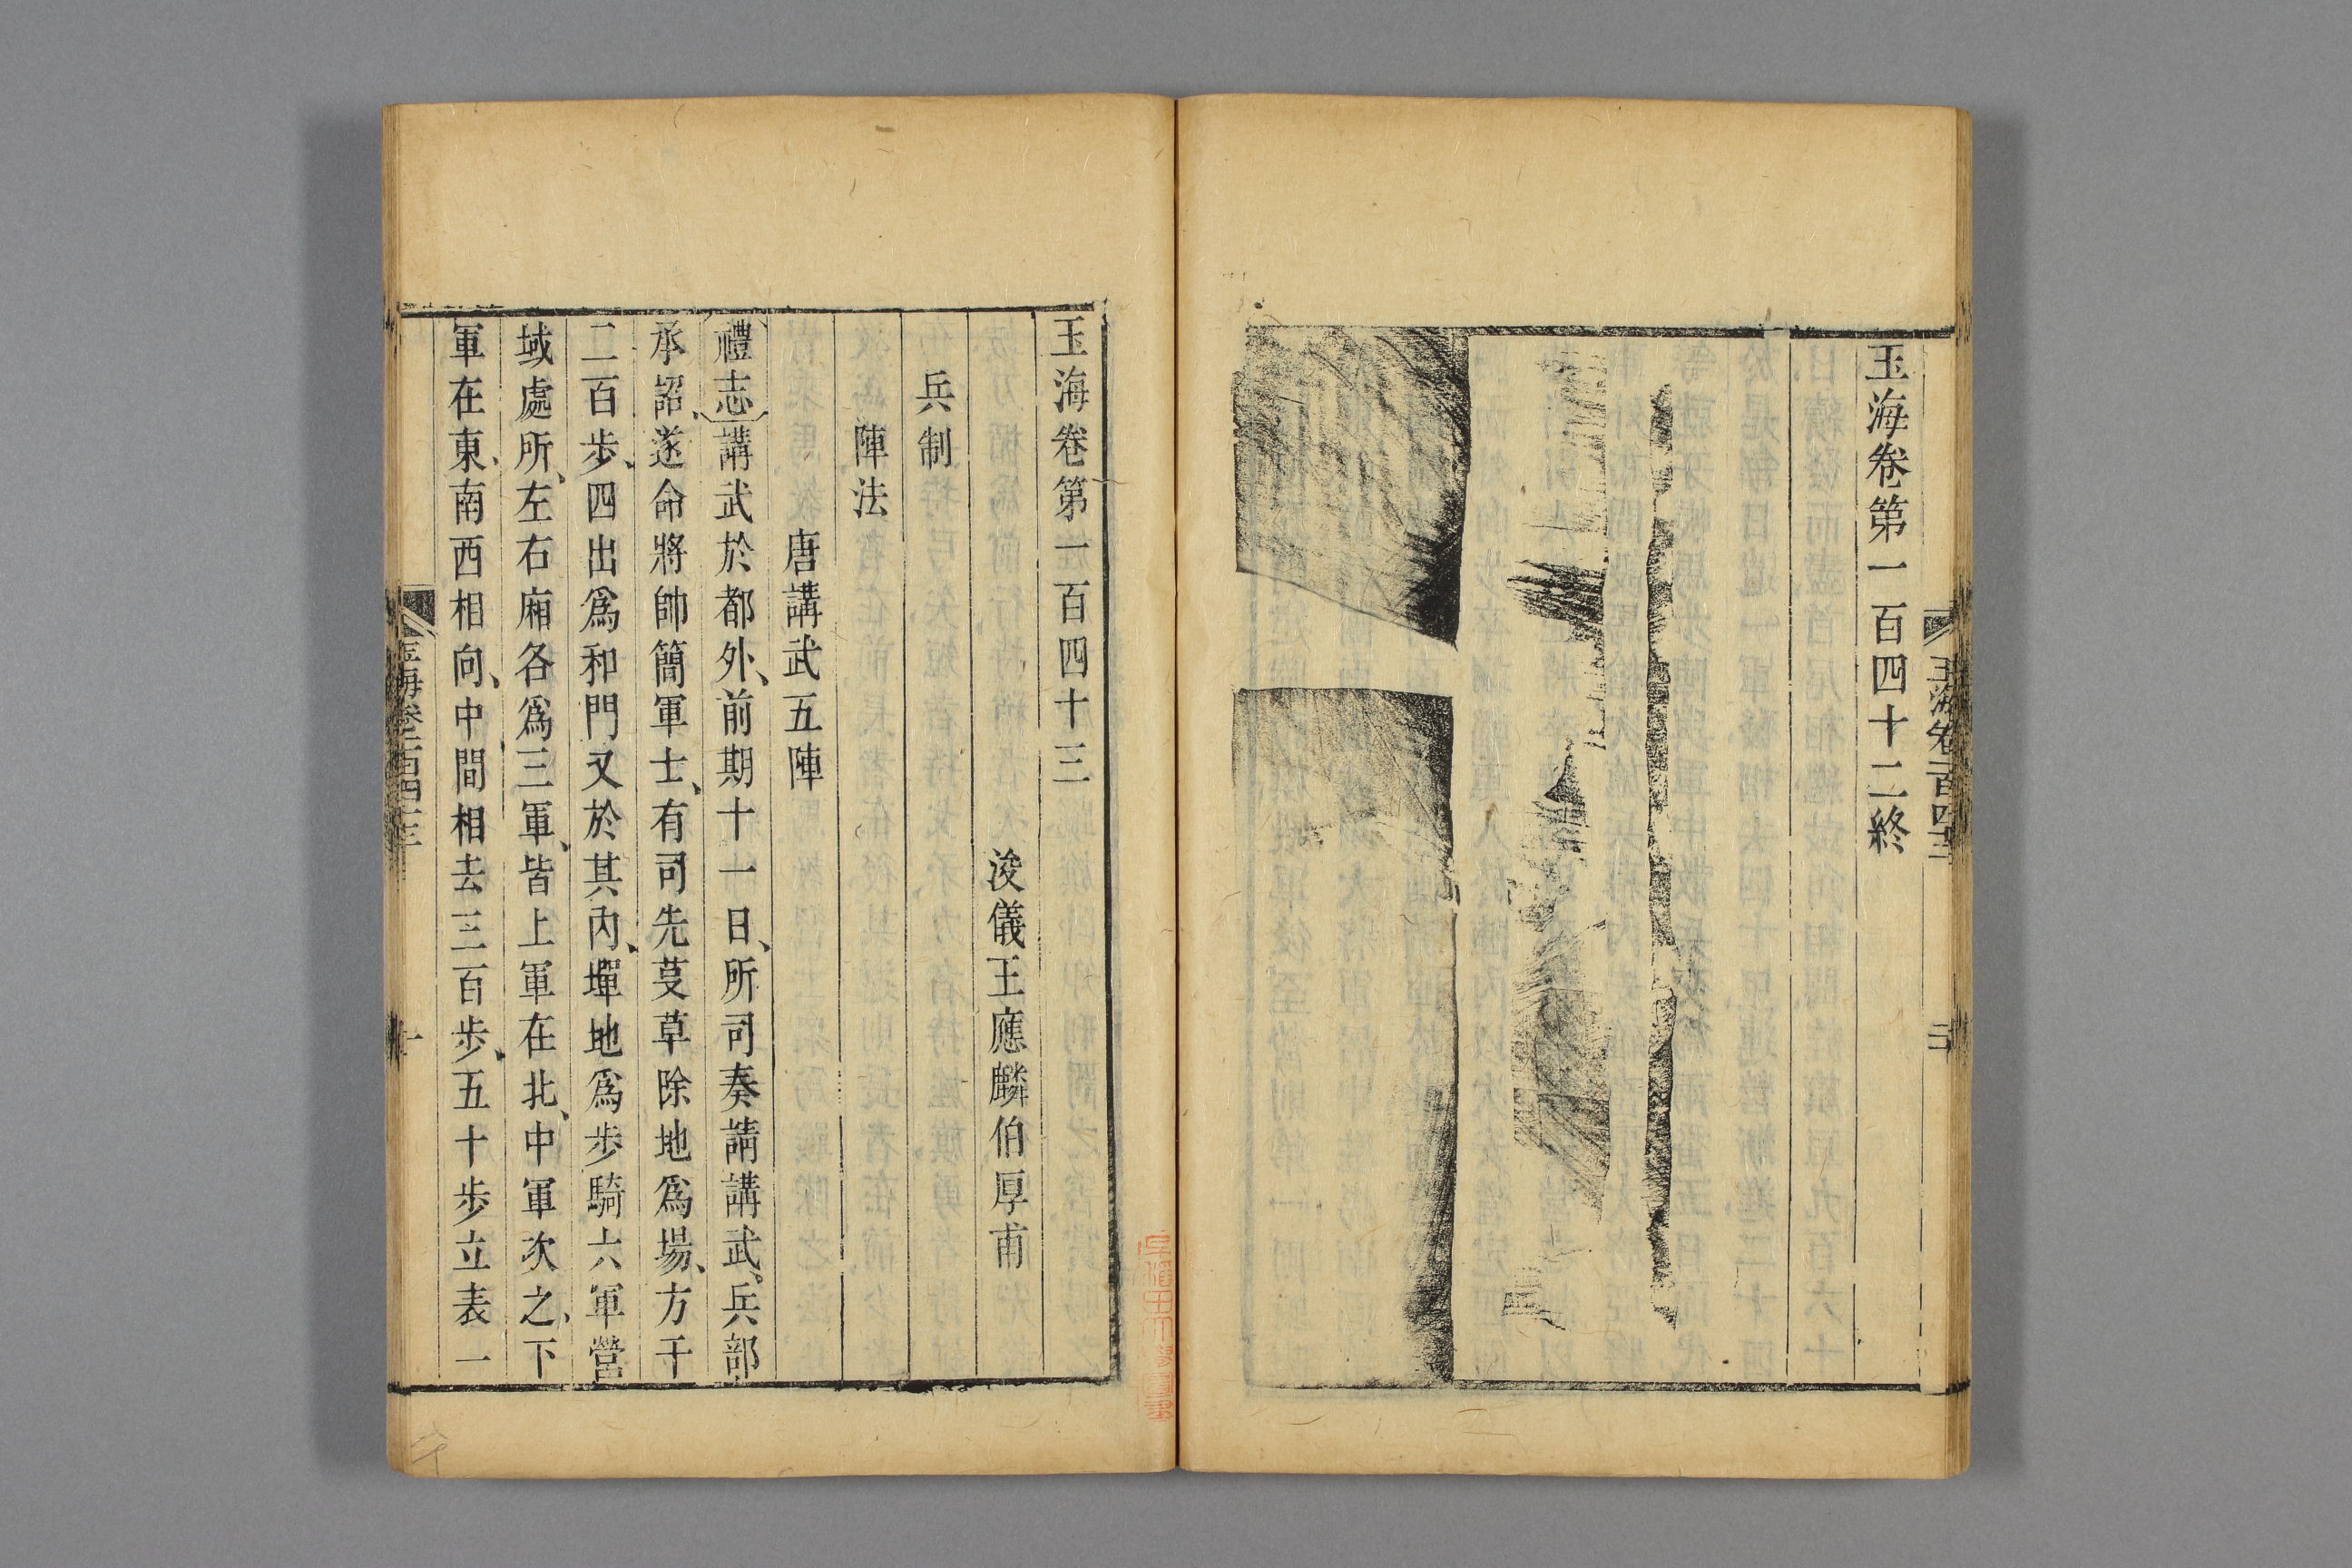 玉海卷第一百四十二終
玉海卷第一百四十三
浚儀王應麟伯厚甫
兵制
陣法
唐講武五陣
禮志講武於都外、前期十一日、所司奏請講武、兵部
承詔、遂命將帥簡軍士、有司先芟草除地爲場、方千
二百步、四出爲和門又於其內、墠地爲步騎六軍營
域處所、左右廂各爲三軍、皆上軍在北、中軍次之、下
軍在東、南西相向、中間相去三百步、五十步立表一